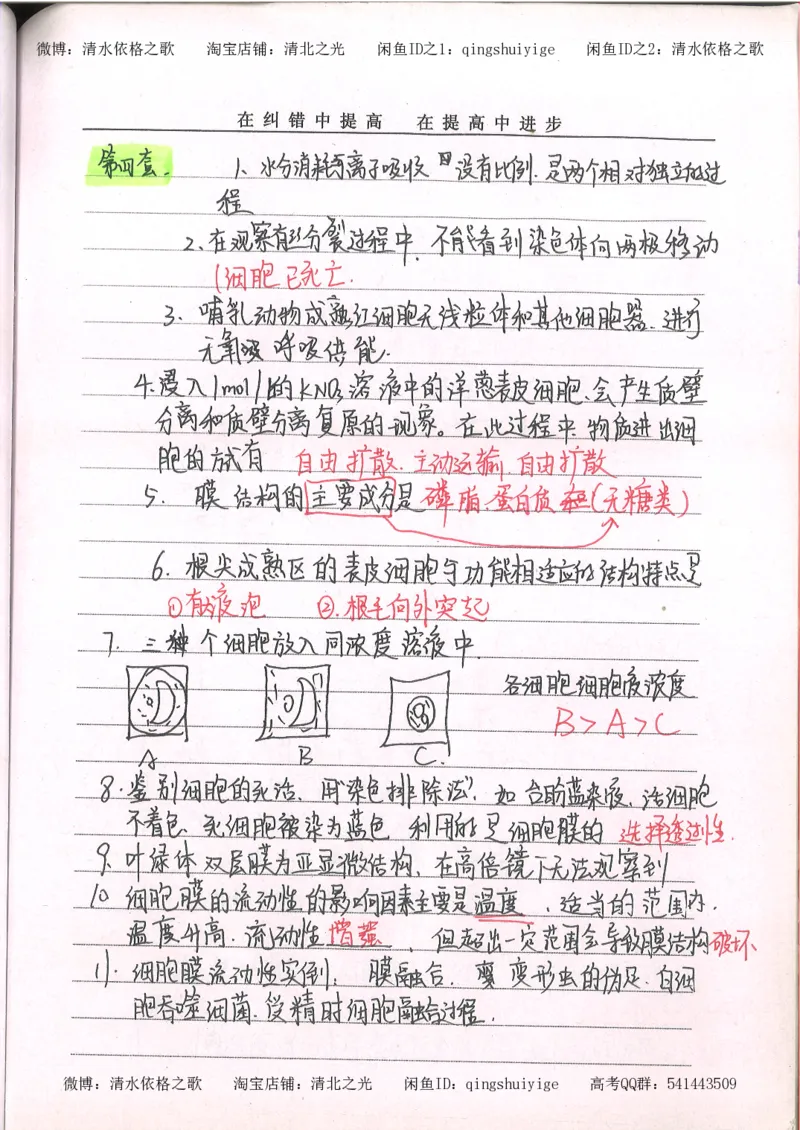 微博：清水依格之歌 淘宝店铺：清北之光 闲鱼ID之1：qingshuiyige 闲鱼ID之2：清水依格之歌
在纠错中提高 在提高中进步
第四套. 1、水分消耗与离子吸收 没有比例.是两个相对独立的过
程
2、在观察有丝分裂过程中,不能看到染色体向两极移动
(细胞已死亡.
3、哺乳动物成熟红细胞无线粒体和其他细胞器.进行
无氧呼吸供能.
4.浸入1mol/l的KNO₃溶液中的洋葱表皮细胞、会产生质壁
分离和质壁分离复原的现象。在此过程中,物质进出细
胞的方式有 自由扩散.主动运输.自由扩散
5. 膜结构的主要成分是磷脂.蛋白质(无糖类)
6. 根尖成熟区的表皮细胞与功能相适应的结构特点是
①有大液泡 ②.根毛向外突起
7. 三个细胞放入同浓度溶液中.
各细胞细胞液浓度
B>A>C
A B C.
8.鉴别细胞的死活、用"染色排除法".如台盼蓝染液、活细胞
不着色、死细胞被染为蓝色 利用的是细胞膜的 选择透过性.
9.叶绿体双层膜为亚显微结构、在高倍镜下无法观察到
10 细胞膜的流动性的影响因素主要是温度、适当的范围内.
温度升高.流动性增强,但超出一定范围会导致膜结构破坏
11.细胞膜流动性实例: 膜融合. 变形虫的伪足.白细
胞吞噬细菌.受精时细胞融合过程.
微博：清水依格之歌 淘宝店铺：清北之光 闲鱼ID：qingshuiyige 高考QQ群：541443509